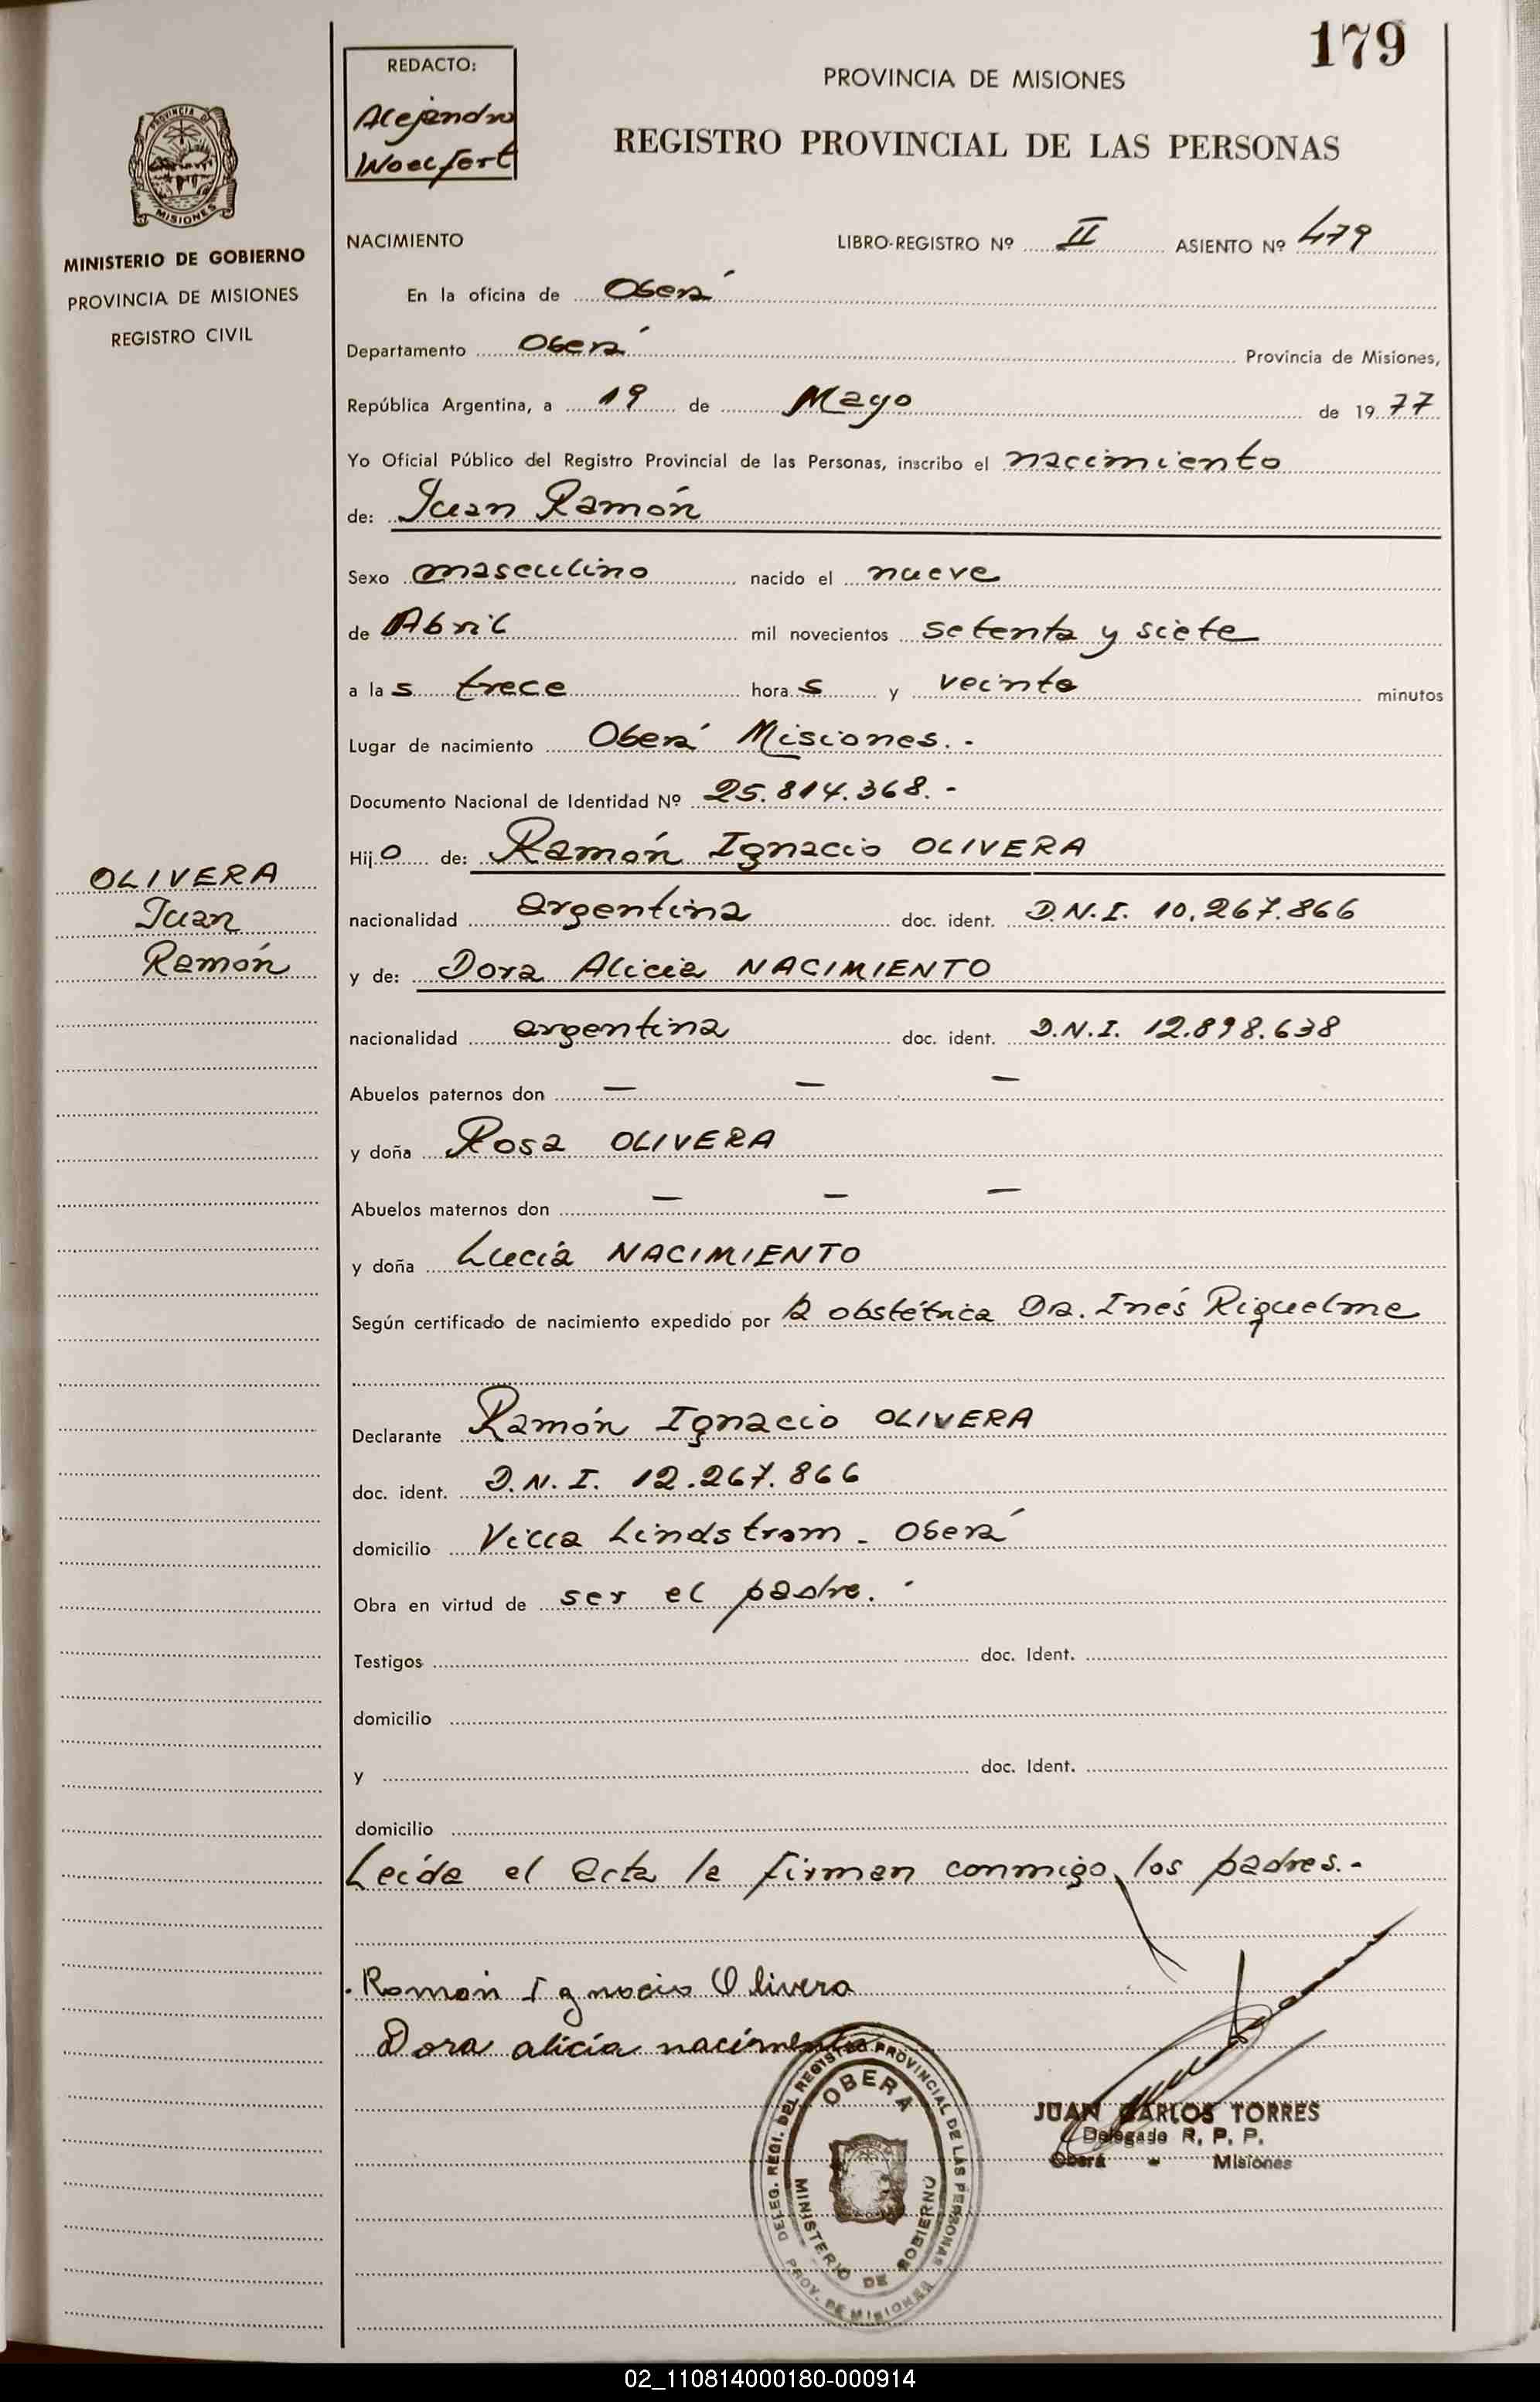 179
REDACTO:
Alejandro
Woelfert
PROVINCIA DE MISIONES
REGISTRO PROVINCIAL DE LAS PERSONAS
PROVINCIA DE
MISIONES
MINISTERIO DE GOBIERNO
PROVINCIA DE MISIONES
REGISTRO CIVIL
NACIMIENTO LIBRO-REGISTRO Nº II ASIENTO Nº 479
En la oficina de Oberá
Departamento Oberá Provincia de Misiones,
República Argentina, a 19 de Mayo de 1977
Yo Oficial Público del Registro Provincial de las Personas, inscribo el nacimiento
de: Juan Ramón
Sexo masculino nacido el nueve
de Abril mil novecientos setenta y siete
a las trece horas y veinte minutos
Lugar de nacimiento Oberá Misiones.-
Documento Nacional de Identidad Nº 25.814.368.-
Hijo de: Ramón Ignacio OLIVERA
OLIVERA
Juan
Ramón
nacionalidad argentina doc. ident. D.N.I. 10.267.866
y de: Dora Alicia NACIMIENTO
nacionalidad argentina doc. ident. D.N.I. 12.898.638
Abuelos paternos don — — —
y doña Rosa OLIVERA
Abuelos maternos don — — —
y doña Lucía NACIMIENTO
Según certificado de nacimiento expedido por la obstétrica Dra. Inés Riquelme
Declarante Ramón Ignacio OLIVERA
doc. ident. D.N.I. 12.267.866
domicilio Villa Lindstrom - Oberá
Obra en virtud de ser el padre.-
Testigos doc. Ident.
domicilio
y doc. Ident.
domicilio
Leída el acta la firman conmigo, los padres.-
Ramón Ignacio Olivera
Dora alicia nacimento
DELEG. REGI. DEL REGISTRO PROVINCIAL DE LAS PERSONAS
OBERA
MINISTERIO DE GOBIERNO
PROV. DE MISIONES
JUAN CARLOS TORRES
Delegado R. P. P.
Oberá - Misiones
02_110814000180-000914